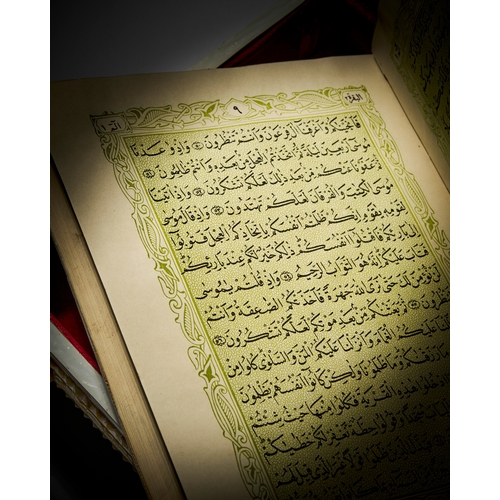 الم ١
٩
البقرة
فَأَنجَيْنَٰكُمْ وَأَغْرَقْنَا ءَالَ فِرْعَوْنَ وَأَنتُمْ تَنظُرُونَ ٥٠ وَإِذْ وَٰعَدْنَا
مُوسَىٰ أَرْبَعِينَ لَيْلَةً ثُمَّ ٱتَّخَذْتُمُ ٱلْعِجْلَ مِنۢ بَعْدِهِۦ وَأَنتُمْ ظَٰلِمُونَ ٥١
ثُمَّ عَفَوْنَا عَنكُم مِّنۢ بَعْدِ ذَٰلِكَ لَعَلَّكُمْ تَشْكُرُونَ ٥٢ وَإِذْ ءَاتَيْنَا
مُوسَى ٱلْكِتَٰبَ وَٱلْفُرْقَانَ لَعَلَّكُمْ تَهْتَدُونَ ٥٣ وَإِذْ قَالَ مُوسَىٰ
لِقَوْمِهِۦ يَٰقَوْمِ إِنَّكُمْ ظَلَمْتُمْ أَنفُسَكُم بِٱتِّخَاذِكُمُ ٱلْعِجْلَ فَتُوبُوٓا۟
إِلَىٰ بَارِئِكُمْ فَٱقْتُلُوٓا۟ أَنفُسَكُمْ ذَٰلِكُمْ خَيْرٌ لَّكُمْ عِندَ بَارِئِكُمْ
فَتَابَ عَلَيْكُمْ إِنَّهُۥ هُوَ ٱلتَّوَّابُ ٱلرَّحِيمُ ٥٤ وَإِذْ قُلْتُمْ يَٰمُوسَىٰ
لَن نُّؤْمِنَ لَكَ حَتَّىٰ نَرَى ٱللَّهَ جَهْرَةً فَأَخَذَتْكُمُ ٱلصَّٰعِقَةُ وَأَنتُمْ
تَنظُرُونَ ٥٥ ثُمَّ بَعَثْنَٰكُم مِّنۢ بَعْدِ مَوْتِكُمْ لَعَلَّكُمْ تَشْكُرُونَ ٥٦
وَظَلَّلْنَا عَلَيْكُمُ ٱلْغَمَامَ وَأَنزَلْنَا عَلَيْكُمُ ٱلْمَنَّ وَٱلسَّلْوَىٰ كُلُوا۟ مِن
مَا رَزَقْنَٰكُمْ وَمَا ظَلَمُونَا وَلَٰكِن كَانُوٓا۟ أَنفُسَهُمْ يَظْلِمُونَ
ٱدْخُلُوا۟ هَٰذِهِ ٱلْقَرْيَةَ فَكُلُوا۟ مِنْهَا حَيْثُ شِئْتُمْ
ٱلْبَابَ سُجَّدًا وَقُولُوا۟ حِطَّةٌ نَّغْفِرْ لَكُمْ خَطَٰيَٰكُمْ
ٱلَّذِينَ ظَلَمُوا۟ قَوْلًا غَيْرَ ٱلَّذِى قِيلَ لَهُمْ